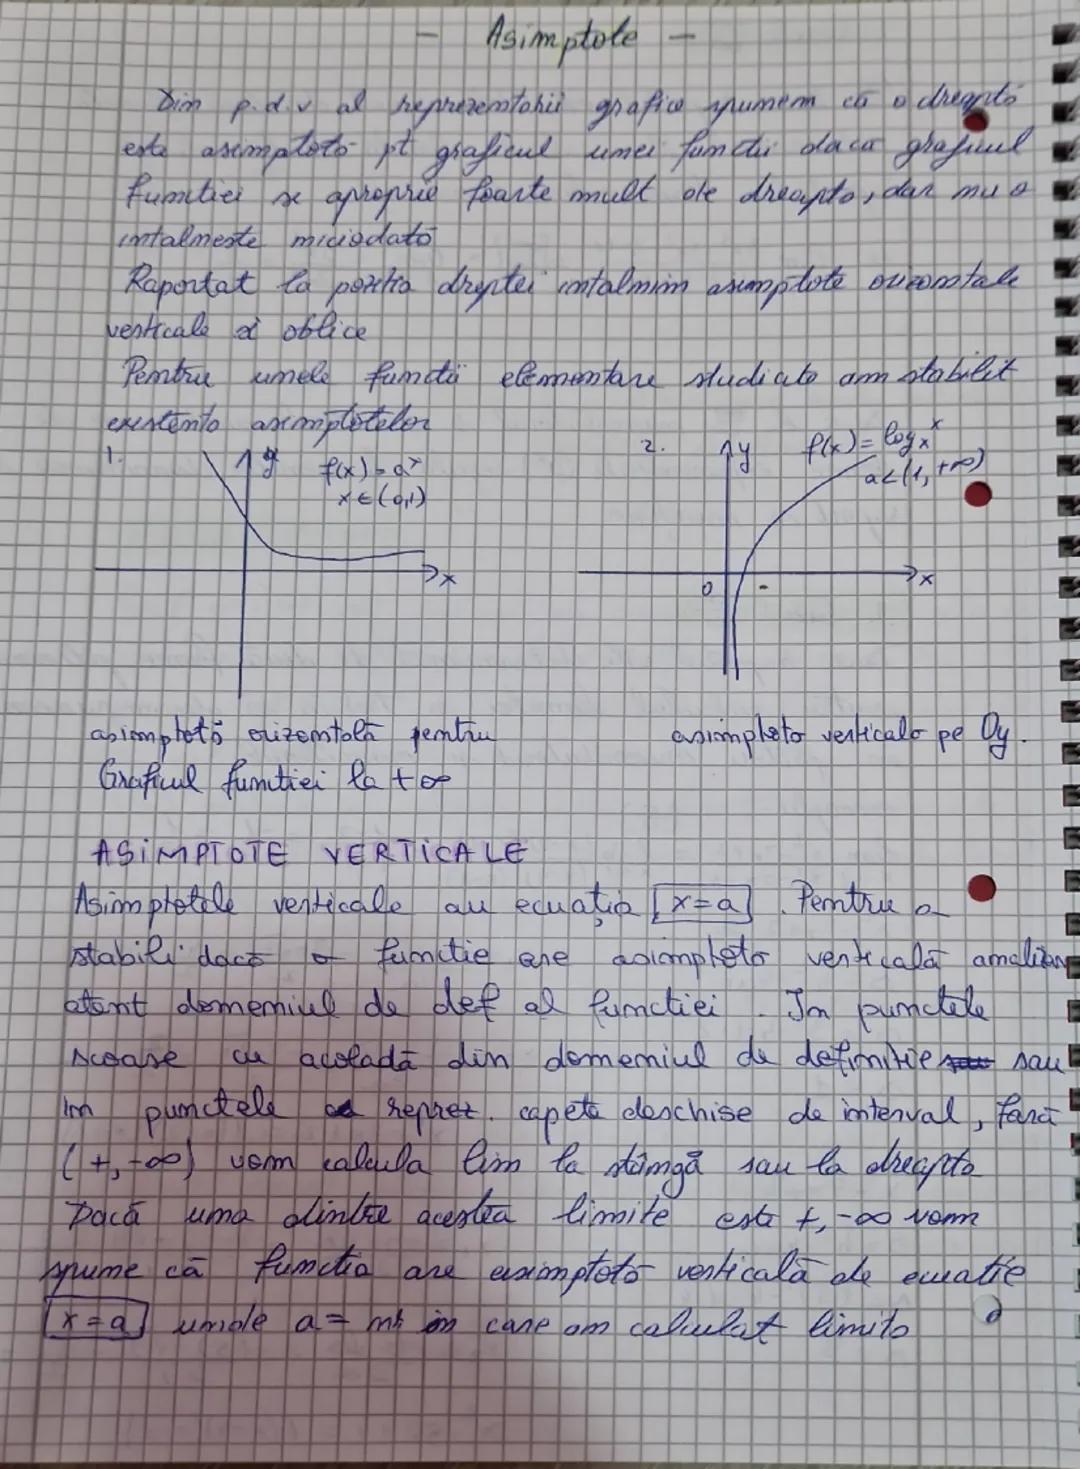 - Asimptote -
Din p.d.v al reprezentării grafice spunem că o dreaptă
este asimptotă pt graficul unei functii daca graficul
functiei se apropie foarte mult de dreapta, dar nu o
intalneste niciodată
Raportat la pozitia dreptei intalnim asimptote orizontale
verticale si oblice
Pentru unele functii elementare studiate am stabilit
existenta asimptotelor
1. y f(x)=aˣ
x∈(0,1)
x
2. y f(x)=log x x
a<(1,+∞)
0 x
asimptotă orizontolă pentru
Graficul functiei la +∞
asimptota verticala pe Oy.
ASIMPTOTE VERTICALE
Asimptotele verticale au ecuația x=a. Pentru a
stabili dacă o functie are asimptotă verticală analizăm
atent domeniul de def al functiei. In punctele
scoase cu acoladă din domeniul de definitie sau
in punctele reprez. capete deschise de interval, fară
(+,-∞) vom calcula lim la stângă sau la dreapta
Dacă una dintre acestea limite este +,-∞ vom
spune că functia are asimptotă verticală de ecuatie
x=a unde a= nr in care am calculat limita